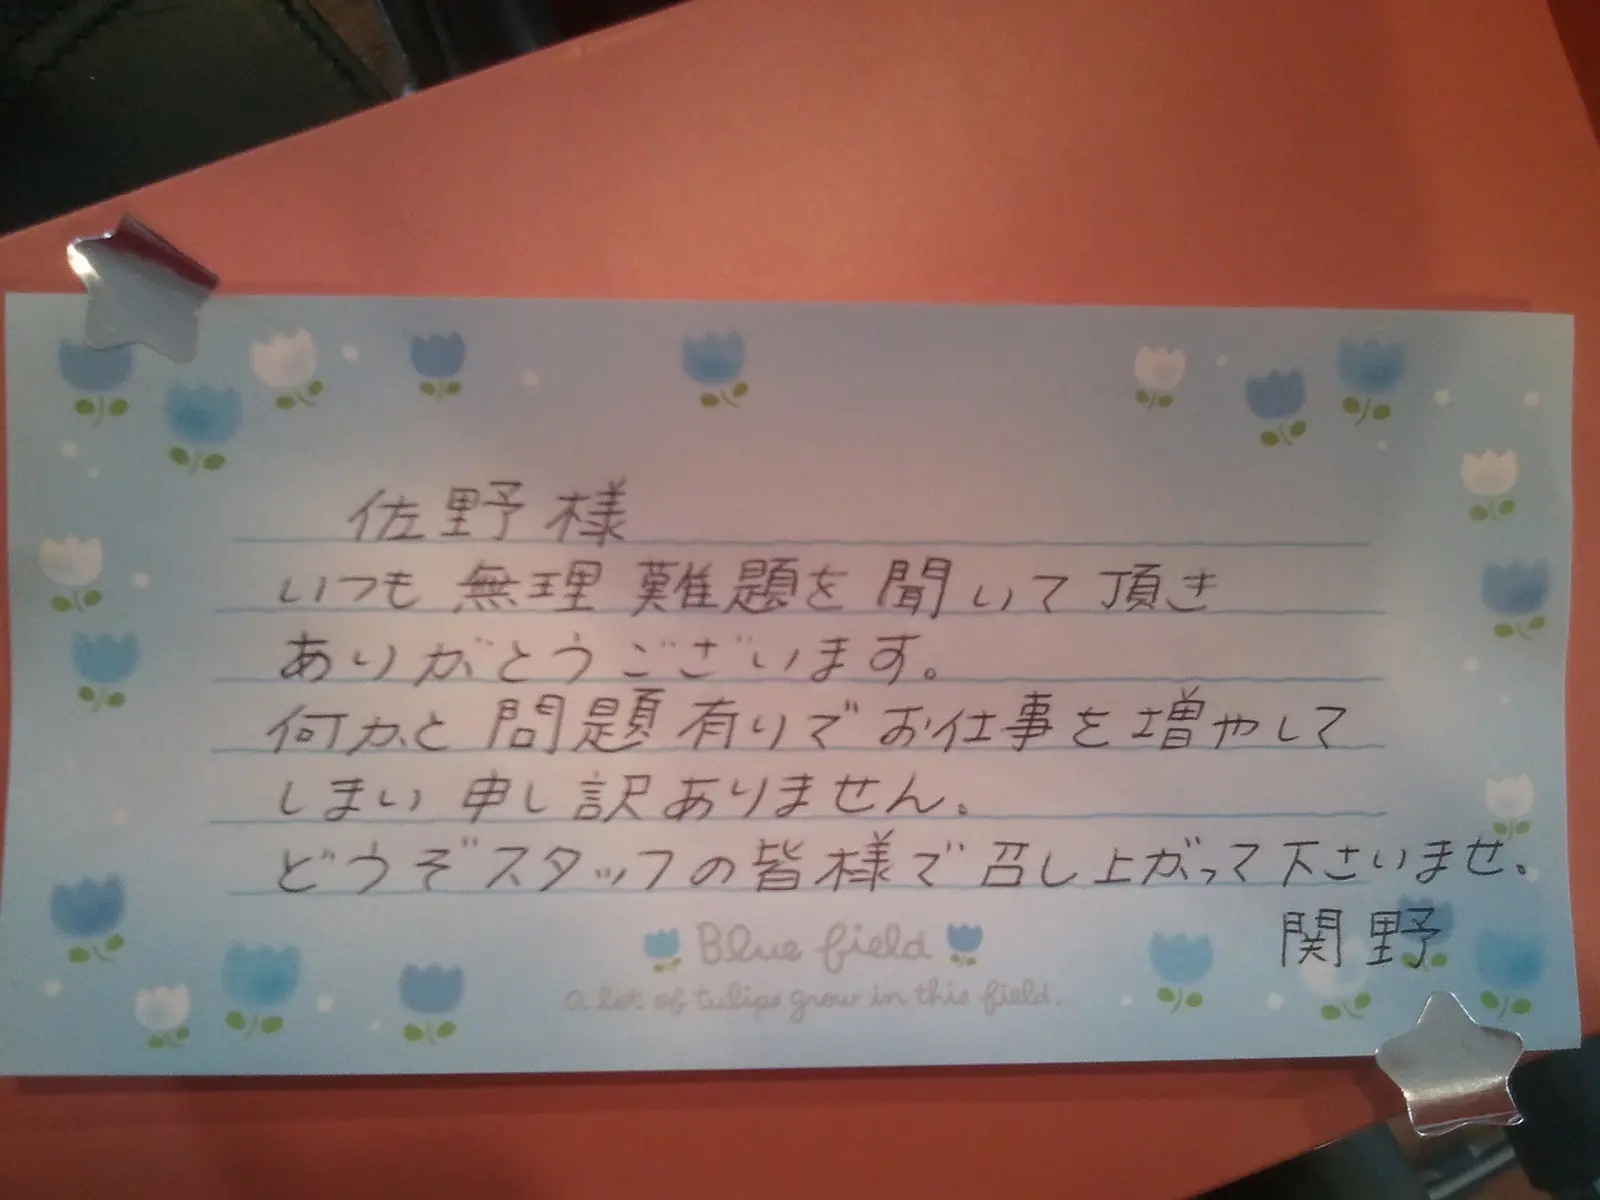 佐野様
いつも無理難題を聞いて頂き
ありがとうございます。
何かと問題有りでお仕事を増やして
しまい申し訳ありません。
どうぞスタッフの皆様で召し上がって下さいませ。
関野
Blue field
a lot of tulips grow in this field.